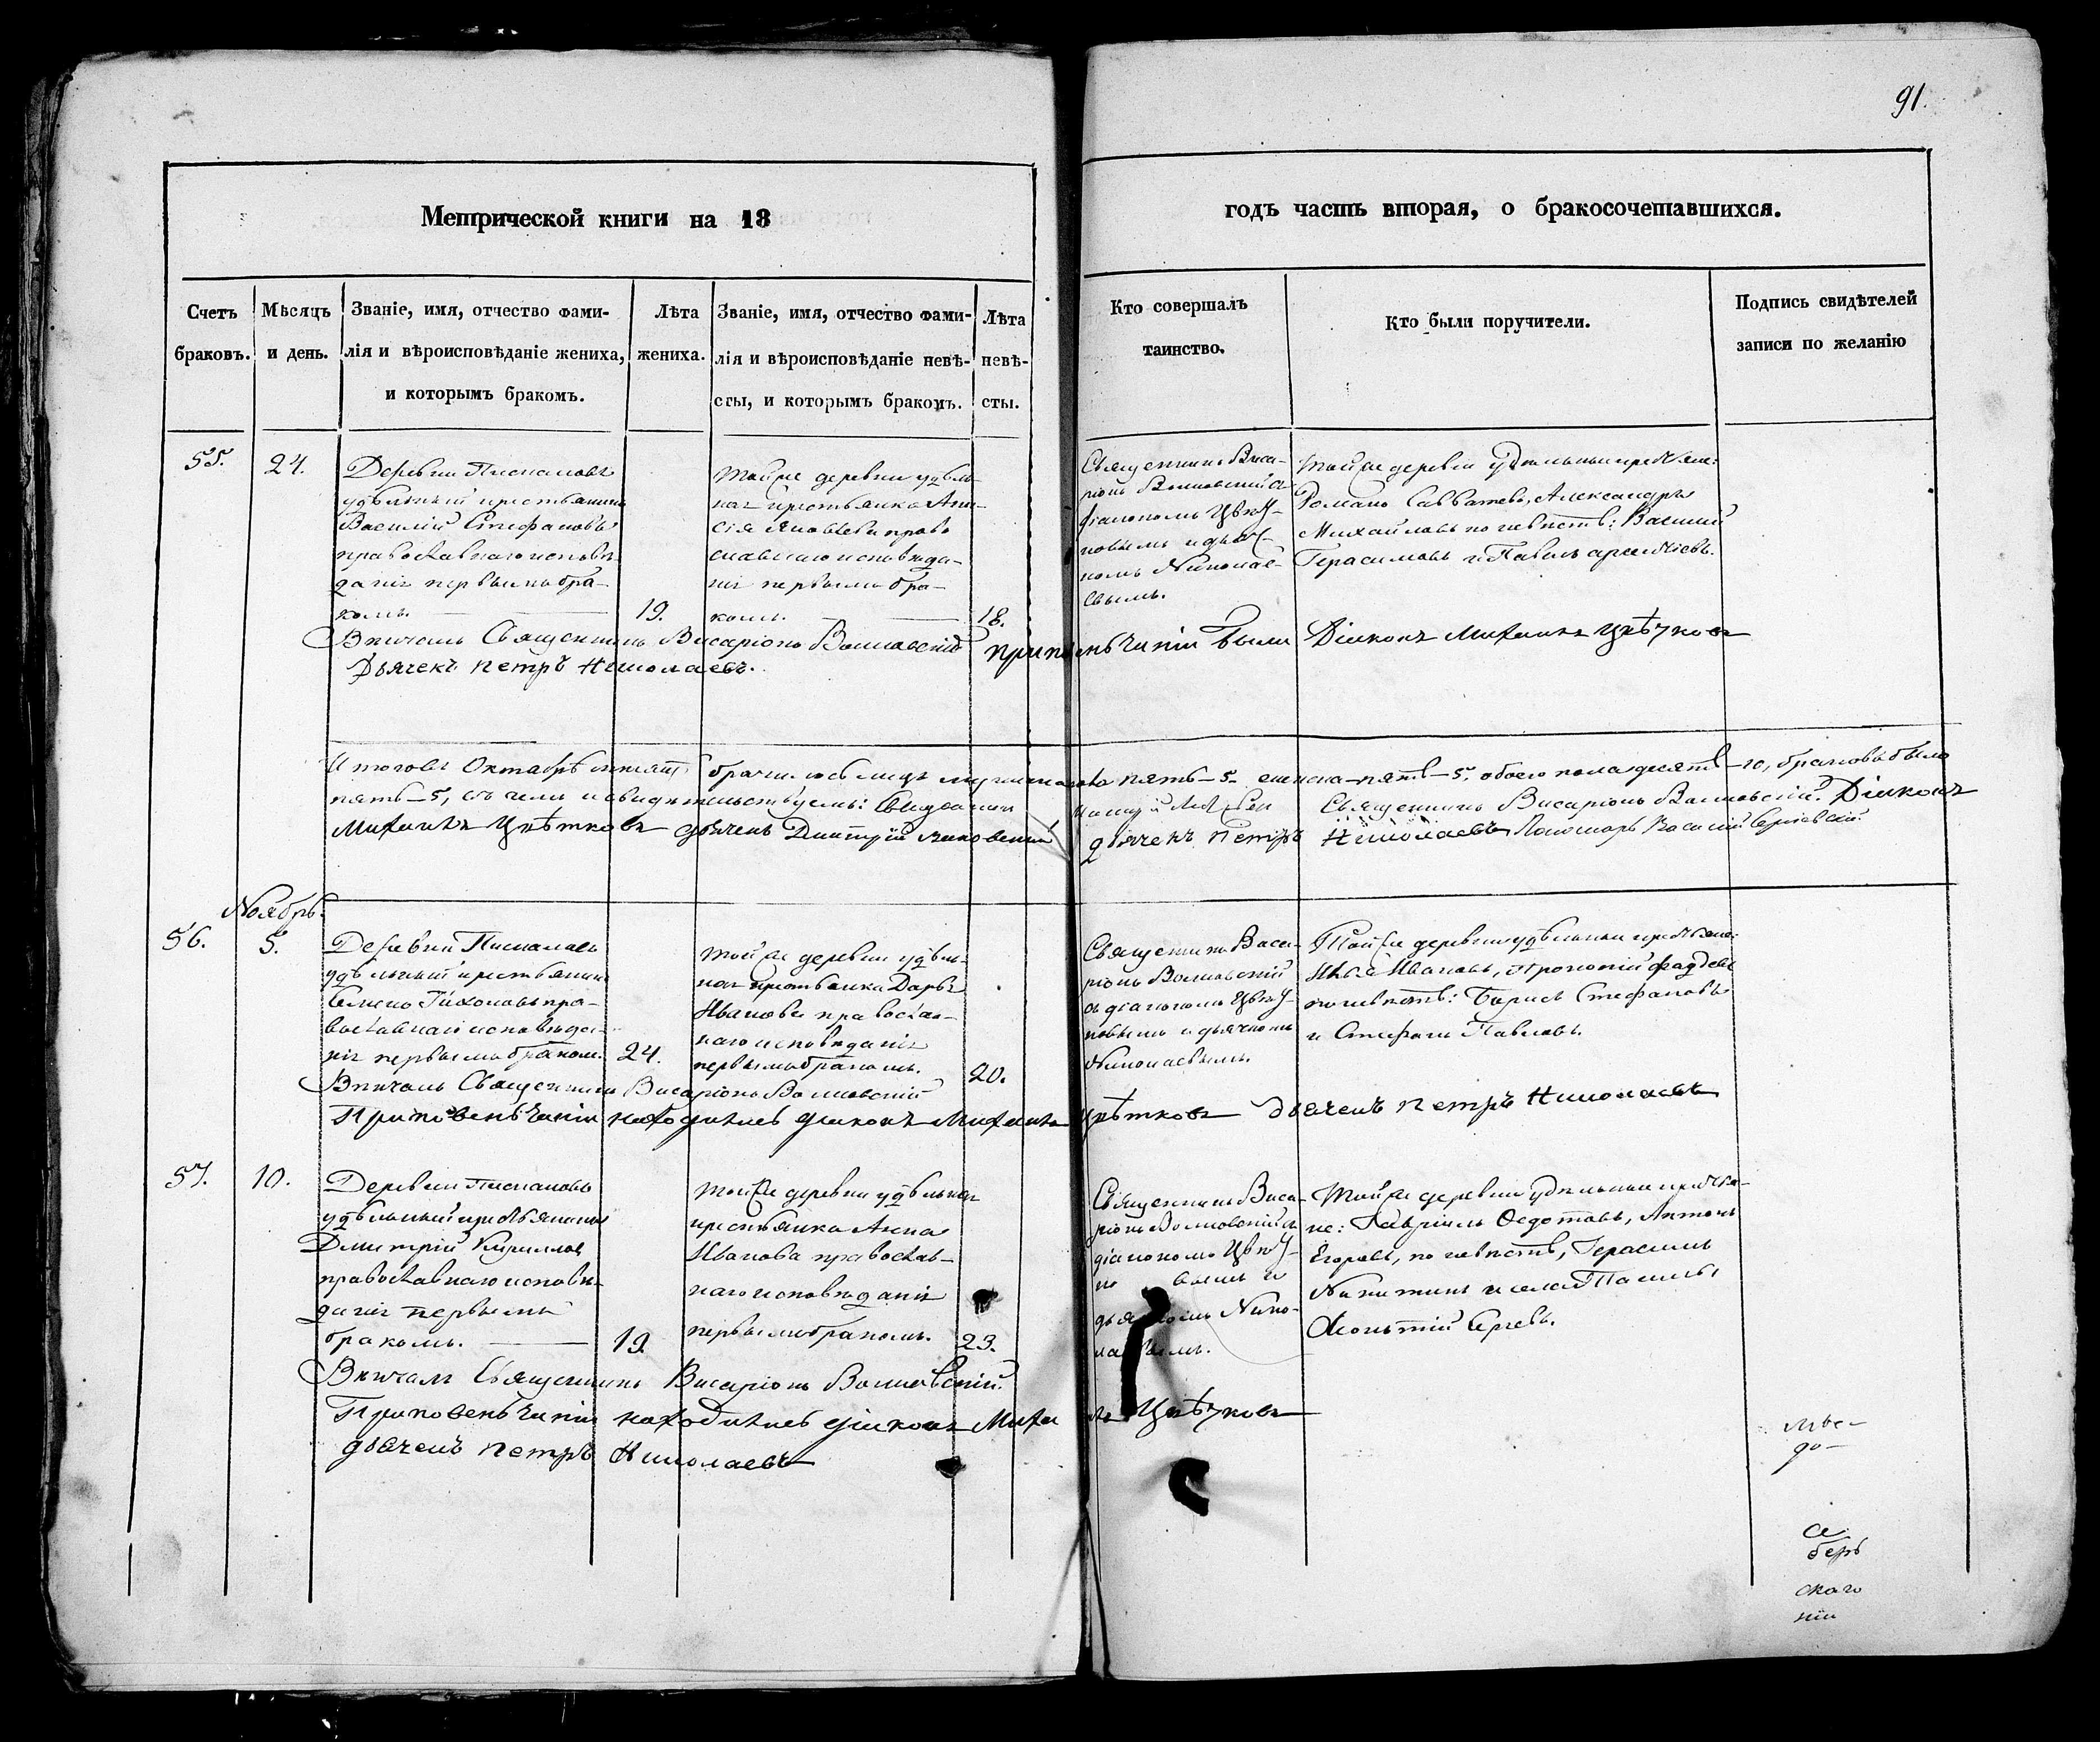 91.
Метрической книги на 18
годъ часть вторая, о бракосочетавшихся.
Счетъ браковъ.
Мѣсяцъ и день.
Званіе, имя, отчество фами-
лія и вѣроисповѣданіе жениха,
и которымъ бракомъ.
Лѣта
жениха.
Званіе, имя, отчество фами-
лія и вѣроисповѣданіе невѣ-
сты, и которымъ бракомъ.
Лѣта
невѣ-
сты.
Кто совершалъ
таинство.
Кто были поручители.
Подпись свидѣтелей
записи по желанію
55.
24.
Деревни Пискаловъ
удѣльный крестьянинъ
Василій Стефановъ
православнаго исповѣ-
данія первымъ бра-
комъ.
19.
Той же деревни удѣль-
ная крестьянка Ани-
сія Яковлева право
славнаго исповѣда-
нія первымъ бра-
комъ.
18.
Священникъ Виса-
ріонъ Волновскій съ
діакономъ Цвѣт-
ковымъ и дьяч-
комъ Николае-
вымъ.
Той же деревни удѣльные крестьяне:
Романъ Савватеевъ, Александръ
Михайловъ по невѣстѣ: Василій
Герасимовъ и Павелъ
Вѣнчалъ Священникъ Висаріонъ Волновскій при повѣнчаніи были Діаконъ Михаилъ Цвѣтковъ
Дьячекъ Петръ Николаевъ.
Итого въ Октябрѣ мѣсяцѣ брачилось лицъ мужеска пола пять–5. женска–пять–5, обоего пола десять–10, браковъ было
пять–5, въ чемъ и свидѣтельствуемъ: Священникъ Священникъ Висаріонъ Волновскій. Діаконъ
Михаилъ Цвѣтковъ дьячекъ Дмитрій дьячекъ Петръ Николаевъ Пономарь Василій Сергіевскій
Ноябрь.
56.
5.
Деревни Пискаловъ
удѣльный крестьянинъ
Тихоновъ пра-
вославнаго исповѣда-
нія первымъ бракомъ.
24.
Той же деревни удѣль-
ная крестьянка Дарья
Иванова православ-
наго исповѣданія
первымъ бракомъ.
20.
Священникъ Виса-
ріонъ Волновскій
съ діакономъ Цвѣт-
ковымъ и дьячкомъ
Николаевымъ.
Той же деревни удѣльные крестьяне:
Ивановъ, Прокопій Фаддеевъ
по невѣстѣ: Борисъ Стефановъ
и Стефанъ Павловъ.
Вѣнчалъ Священникъ Висаріонъ Волновскій
При повѣнчаніи находились діаконъ Михаилъ Цвѣтковъ дьячекъ Петръ Николаевъ
57.
10.
Деревни Пискаловъ
удѣльный крестьянинъ
Дмитрій Кириллов
православнаго исповѣ-
данія первымъ
бракомъ.
19.
Той же деревни удѣльная
крестьянка Анна
Иванова православ-
наго исповѣданія
первымъ бракомъ.
23.
Священникъ Виса-
ріонъ Волновскій съ
діакономъ Цвѣт-
ко вымъ и
дьячкомъ Нико-
лаевымъ.
Той же деревни удѣльные крестья-
не: Гавріилъ Федотовъ, Антонъ
Егоровъ, по невѣстѣ, Герасимъ
Никитинъ и села
Сергѣевъ.
Вѣнчалъ Священникъ Висаріонъ Волновскій.
При повѣнчаніи находились діаконъ Миха илъ Цвѣтковъ
дьячекъ Петръ Николаевъ
до–
беръ
скаго
ніи